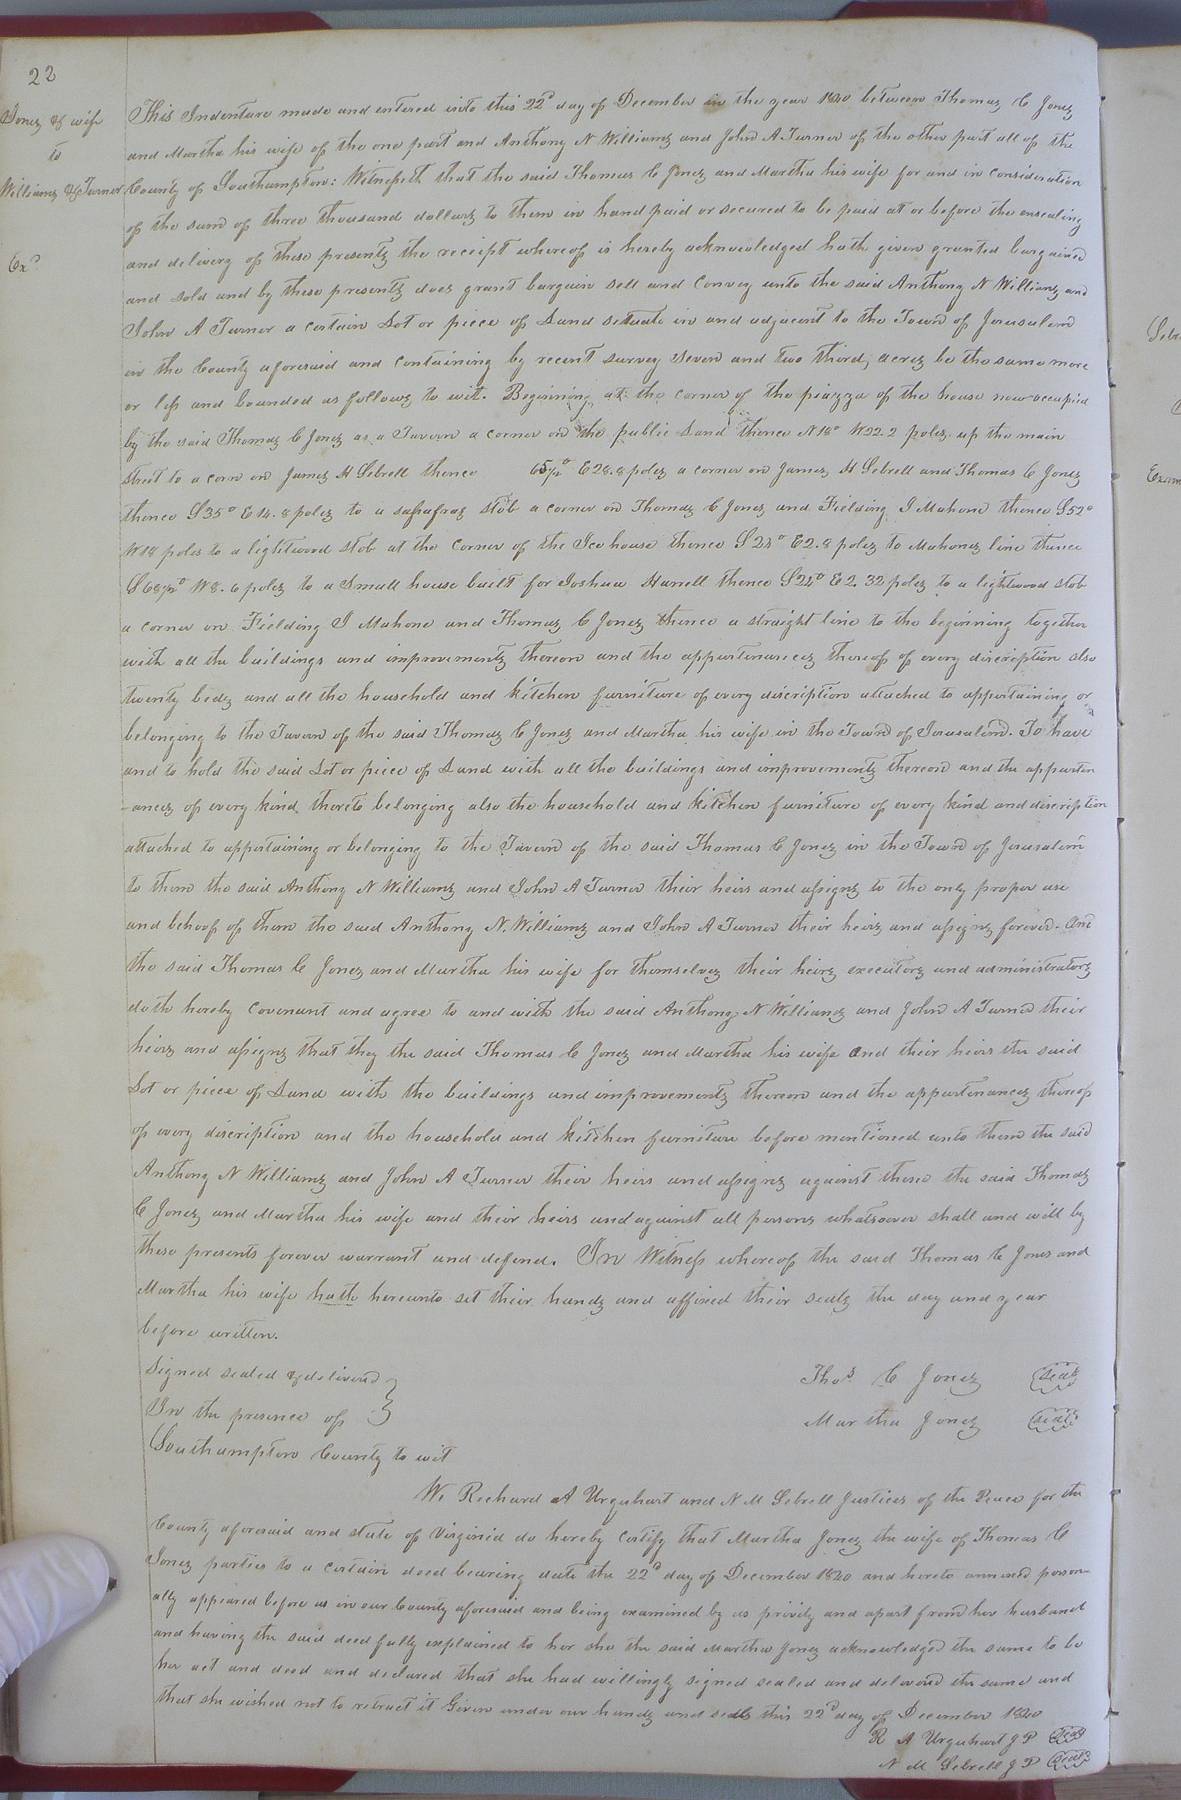 22
Jones & wife
to
Williams & Turner
Exd
This Indenture made and entered into this 22d day of December in the year 1840 between Thomas C Jones
and Martha his wife of the one part and Anthony N Williams and John A Turner of the other part all of the
County of Southampton: Witnesseth that the said Thomas C Jones and Martha his wife for and in consideration
of the sum of three thousand dollars to them in hand paid or secured to be paid at or before the ensealing
and delivery of these presents the receipt whereof is hereby acknowledged hath given granted bargained
and sold and by these presents does grant bargain sell and Convey unto the said Anthony N Williams and
John A Turner a certain Lot or piece of Land situate in and adjacent to the Town of Jerusalem
in the County aforesaid and containing by recent survey seven and two third, acres be the same more
or less and bounded as follows to wit. Beginning at the corner of the piazza of the house now occupied
by the said Thomas C Jones as a Tavern a corner on the public Land thence N18° W22.2 poles up the main
street to a corn on James H Sebrell thence 65½° E28.8 poles a corner on James H Sebrell and Thomas C Jones
thence S35° E14.8 poles to a sassafras stob a corner on Thomas C Jones and Fielding J Mahone thence S52°
W18 poles to a lightwood stob at the corner of the Ice house thence S23° E2.8 poles to Mahones line thence
S68½° W8.6 poles to a Small house built for Joshua Harrell thence S22° E2.32 poles to a lightwood stob
a corner on Fielding J Mahone and Thomas C Jones thence a straight line to the beginning together
with all the buildings and improvements thereon and the appurtenances thereof of every discription also
twenty beds and all the household and kitchen furniture of every discription attached to appertaining or
belonging to the Tavern of the said Thomas C Jones and Martha his wife in the Town of Jerusalem. To have
and to hold the said Lot or piece of Land with all the buildings and improvements thereon and the appurten
-ances of every kind thereto belonging also the household and kitchen furniture of every kind and discription
attached to appertaining or belonging to the Tavern of the said Thomas C Jones in the Town of Jerusalem
to them the said Anthony N Williams and John A Turner their heirs and assigns to the only proper use
and behoof of them the said Anthony N. Williams and John A Turner their heirs and assigns forever. And
the said Thomas C Jones and Martha his wife for themselves their heirs executors and administrators
doth hereby covenant and agree to and with the said Anthony N Williams and John A Turner their
heirs and assigns that they the said Thomas C Jones and Martha his wife and their heirs the said
Lot or piece of Land with the buildings and improvements thereon and the appurtenances thereof
of every discription and the household and kitchen furniture before mentioned unto them the said
Anthony N Williams and John A Turner their heirs and assigns against them the said Thomas
C Jones and Martha his wife and their heirs and against all persons whatsoever shall and will by
these presents forever warrant and defend. In Witness whereof the said Thomas C Jones and
Martha his wife hath hereunto set their hands and affixed their seals the day and year
before written.
Signed sealed & delivered
In the presence of
Thos C Jones seal
Martha Jones seal
Southampton County to wit
We Richard A Urquhart and N M Sebrell Justices of the Peace for the
County aforesaid and state of Virginia do hereby certify that Martha Jones the wife of Thomas C
Jones parties to a certain deed bearing date the 22d day of December 1840 and hereto annexed person-
ally appeared before us in our County aforesaid and being examined by us privily and apart from her husband
and having the said deed fully explained to her she the said Martha Jones acknowledged the same to be
her act and deed and declared that she had willingly signed sealed and delivered the same and
that she wished not to retract it Given under our hands and seals this 22d day of December 1840
R A Urquhart JP seal
N M Sebrell JP seal